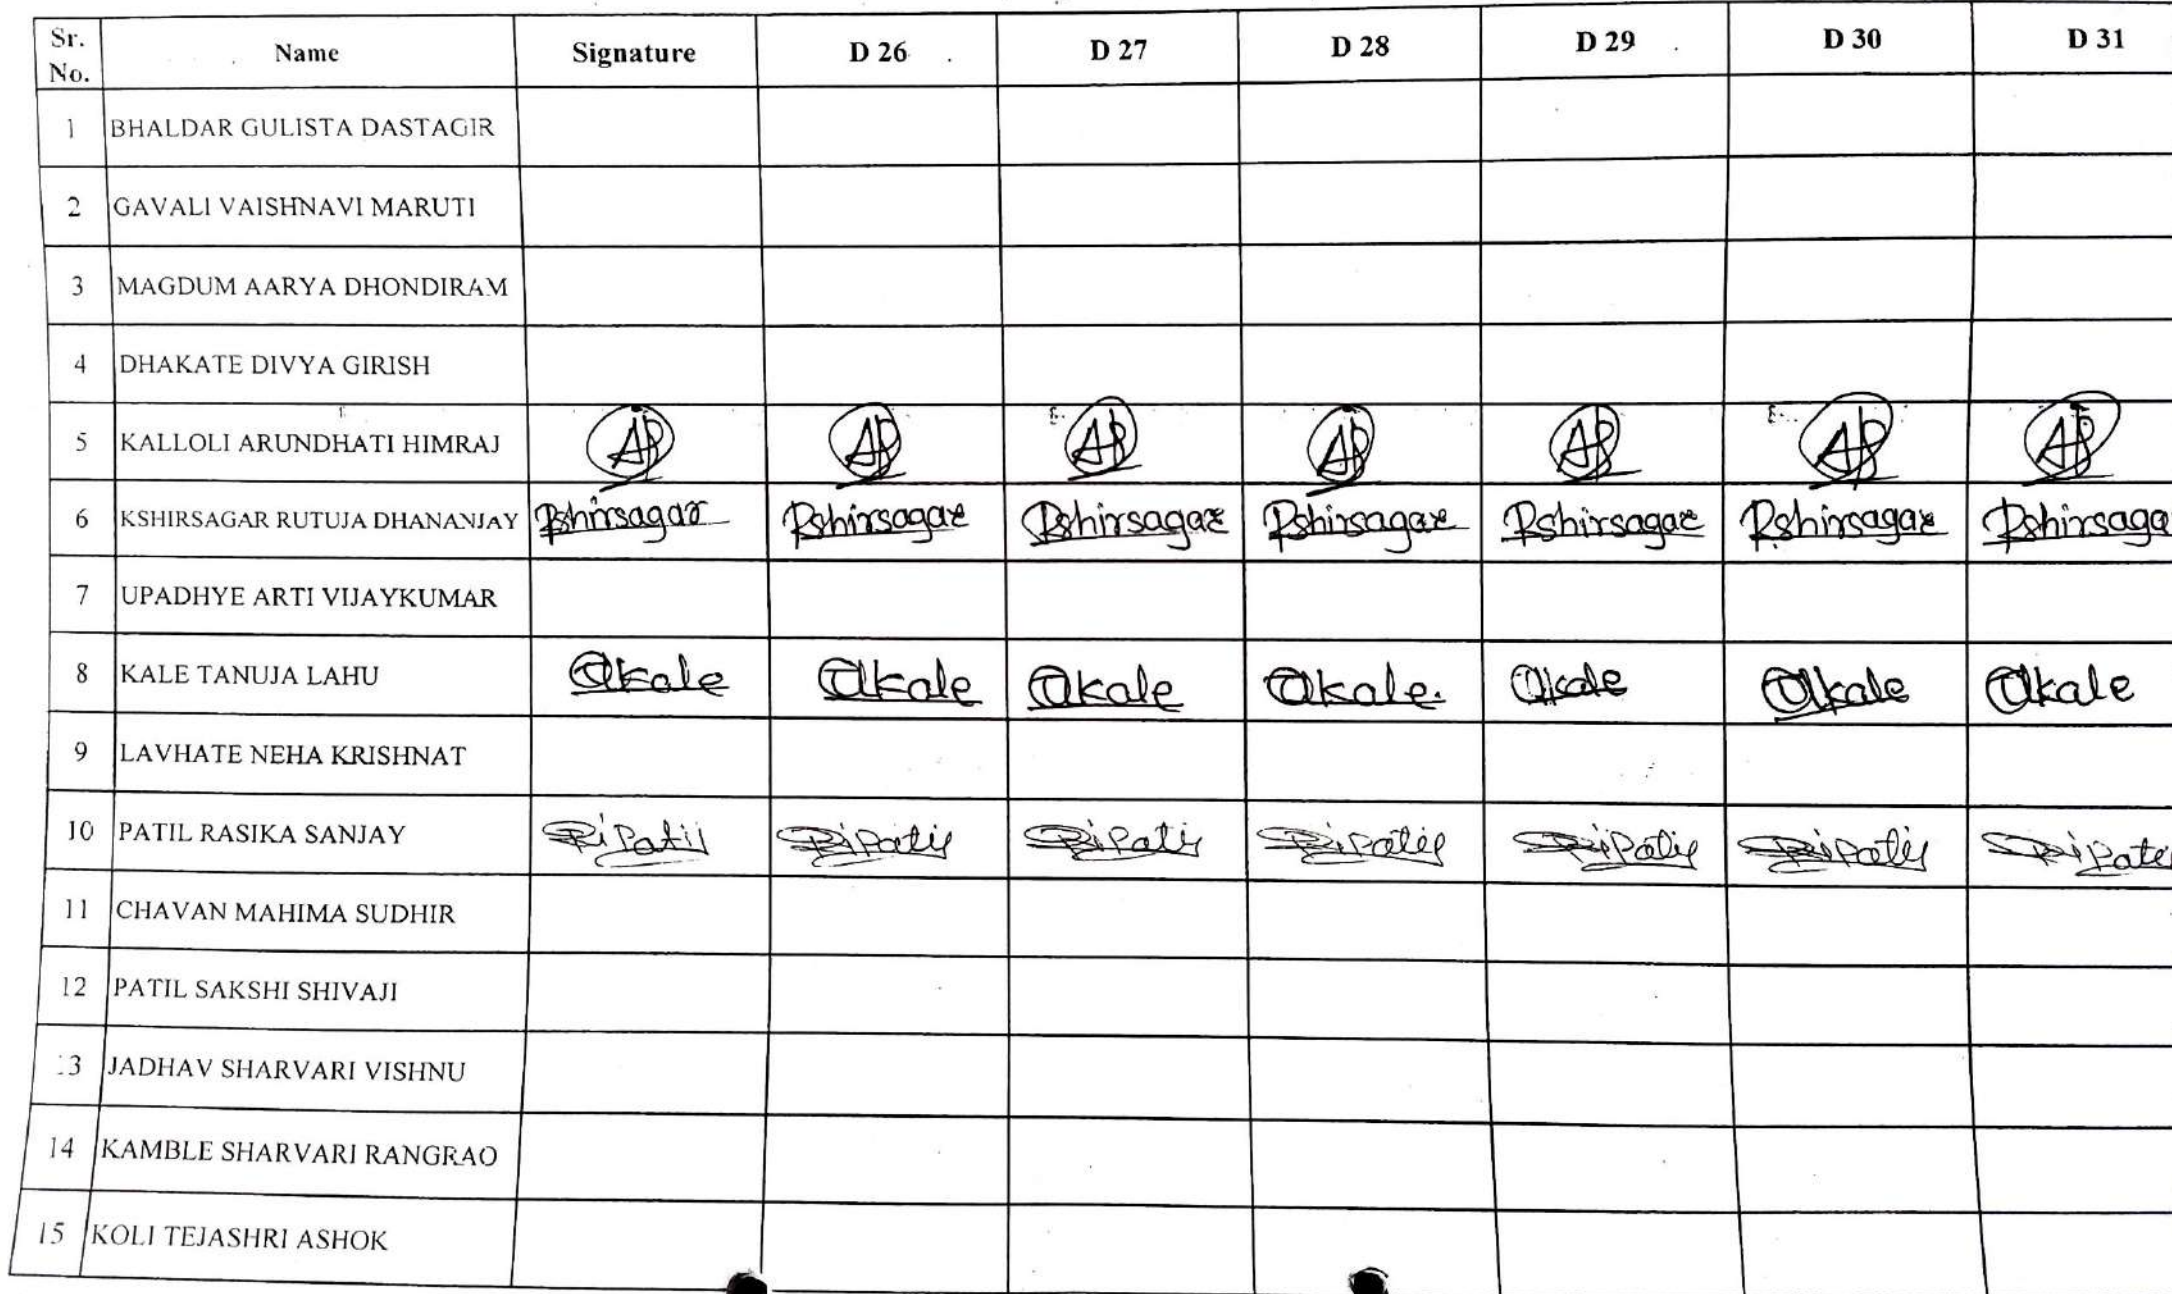 Sr. No. Name Signature D 26 D 27 D 28 D 29 D 30 D 31
1 BHALDAR GULISTA DASTAGIR
2 GAVALI VAISHNAVI MARUTI
3 MAGDUM AARYA DHONDIRAM
4 DHAKATE DIVYA GIRISH
5 KALLOLI ARUNDHATI HIMRAJ
6 KSHIRSAGAR RUTUJA DHANANJAY Rshirsagar Rshirsagar Rshirsagar Rshirsagar Rshirsagar Rshirsagar Rshirsaga
7 UPADHYE ARTI VIJAYKUMAR
8 KALE TANUJA LAHU Tlkale Tlkale Tlkale Tlkale. Tlkale Tlkale Tlkale
9 LAVHATE NEHA KRISHNAT
10 PATIL RASIKA SANJAY Patil
11 CHAVAN MAHIMA SUDHIR
12 PATIL SAKSHI SHIVAJI
13 JADHAV SHARVARI VISHNU
14 KAMBLE SHARVARI RANGRAO
15 KOLI TEJASHRI ASHOK